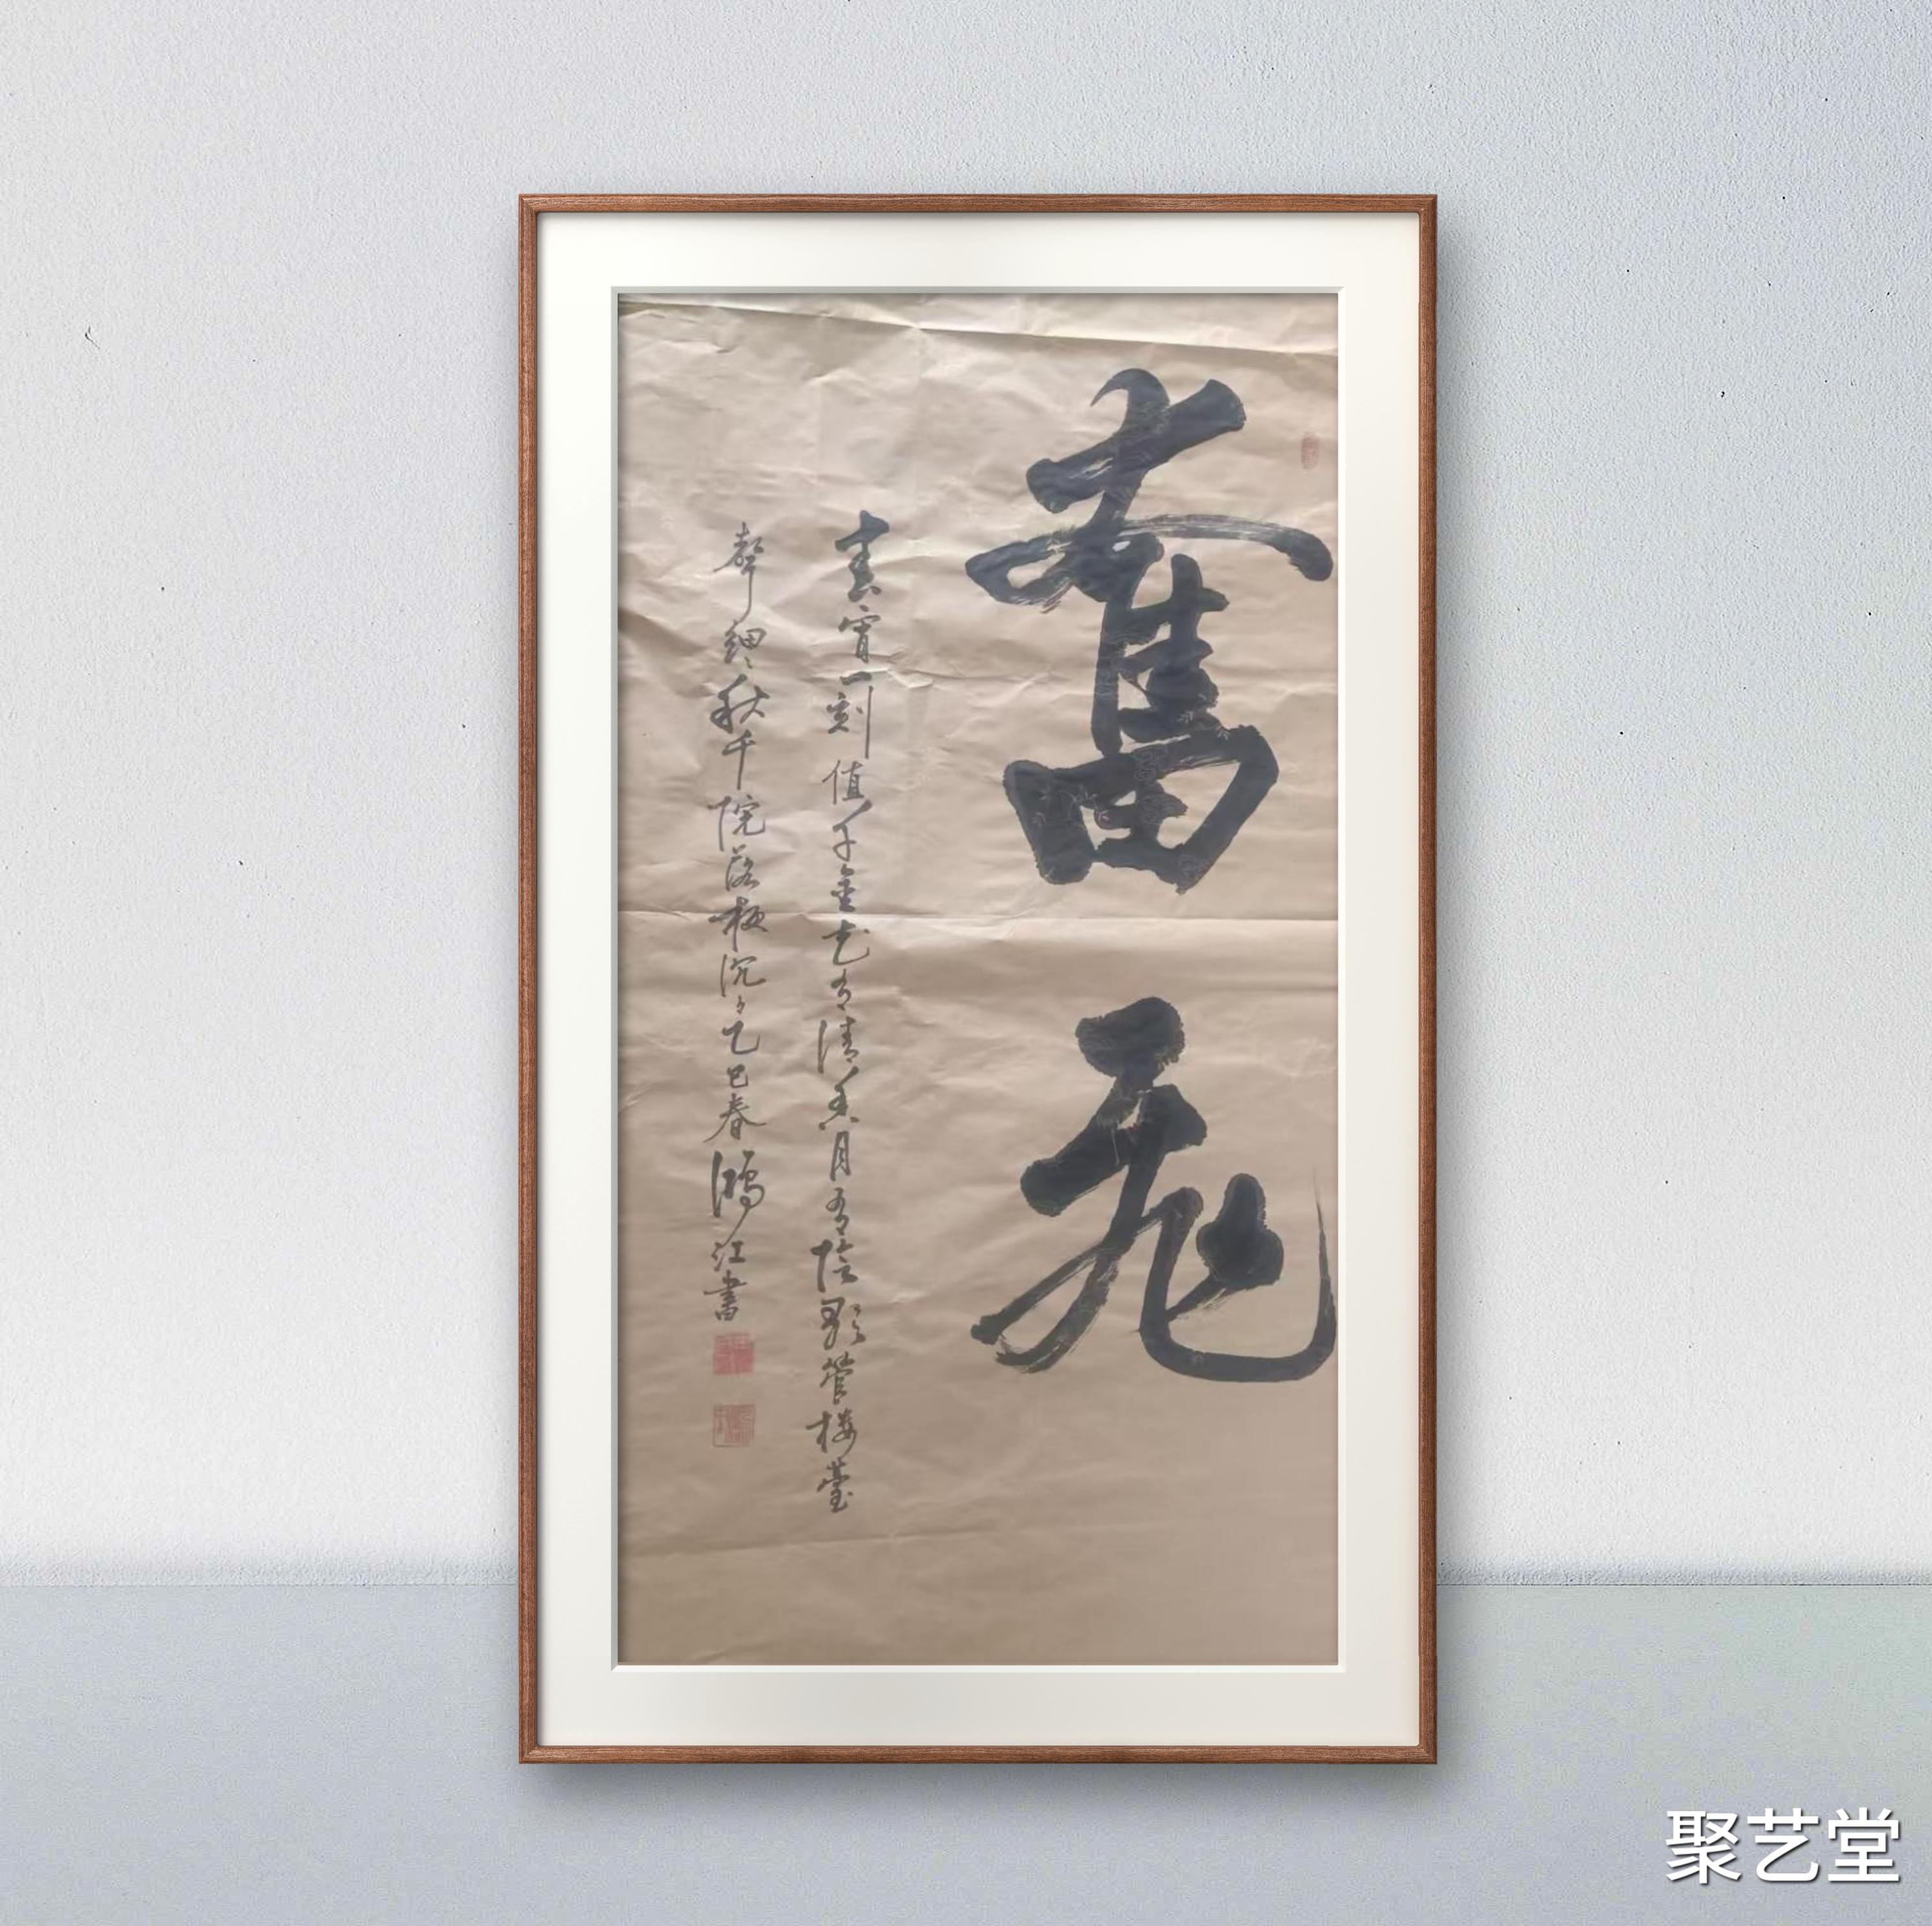 奮飛
春宵一刻值千金花有清香月有陰歌管楼臺
聲細〻秋千院落夜沉〻乙巳春鴻江書
聚艺堂